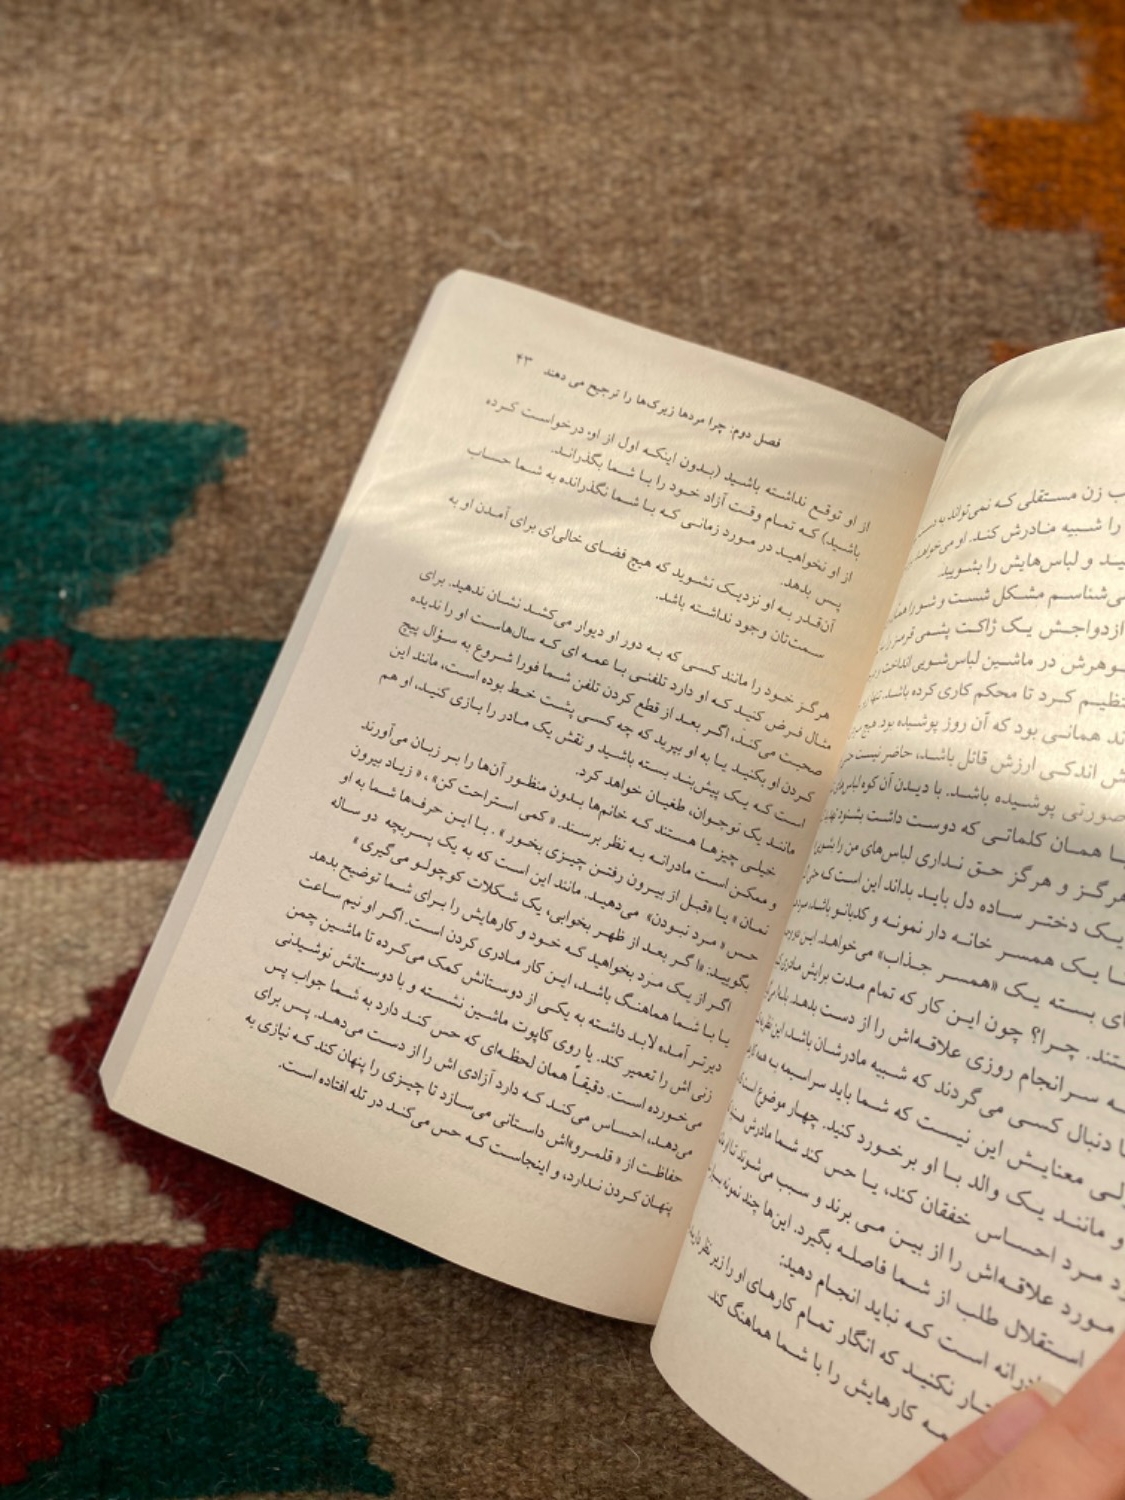 فصل دوم: چرا مردها زیرک‌ها را ترجیح می دهند ۴۳
از او توقع نداشته باشید (بدون اینکه اول از او، درخواست کرده
باشید) که تمام وقت آزاد خود را با شما بگذراند.
از او نخواهید در مورد زمانی که با شما نگذرانده به شما حساب
پس بدهد.
آن‌قدر به او نزدیک نشوید که هیچ فضای خالی‌ای برای آمدن او به
سمت‌تان وجود نداشته باشد.
هرگز خود را مانند کسی که به دور او دیوار می‌کشد نشان ندهید. برای
مثال فرض کنید که او دارد تلفنی با عمه ای که سال‌هاست او را ندیده
صحبت می‌کند، اگر بعد از قطع کردن تلفن شما فورا شروع به سؤال پیچ
کردن او بکنید یا به او بپرید که چه کسی پشت خط بوده است، مانند این
است که یک پیش‌بند بسته باشید و نقش یک مادر را بازی کنید، او هم
مانند یک نوجوان، طغیان خواهد کرد.
خیلی چیزها هستند که خانم‌ها بدون منظور آن‌ها را بر زبان می‌آورند
و ممکن است مادرانه به نظر برسند. «کمی استراحت کن»، «زیاد بیرون
نمان» یا «قبل از بیرون رفتن چیزی بخور». با این حرف‌ها شما به او
حس «مرد نبودن» می‌دهید. مانند این است که به یک پسربچه دو ساله
بگویید: «اگر بعد از ظهر بخوابی، یک شکلات کوچولو می‌گیری»
اگر از یک مرد بخواهید که خود و کارهایش را برای شما توضیح بدهد
یا با شما هماهنگ باشد، این کار مادری کردن است. اگر او نیم ساعت
دیرتر آمده لابد داشته به یکی از دوستانش کمک می‌کرده تا ماشین چمن
زنی اش را تعمیر کند. یا روی کاپوت ماشین نشسته و با دوستانش نوشیدنی
می‌خورده است. دقیقاً همان لحظه‌ای که حس کند دارد به شما جواب پس
می‌دهد، احساس می‌کند که دارد آزادی اش را از دست می‌دهد. پس برای
حفاظت از «قلمرو»اش داستانی می‌سازد تا چیزی را پنهان کند که نیازی به
پنهان کردن ندارد، و اینجاست که حس می‌کند در تله افتاده است.
زن مستقلی که نمی‌تواند به
را شبیه مادرش کند. او می‌خواهد
و لباس‌هایش را بشویید.
می‌شناسم مشکل شست و شو را
ازدواجش یک ژاکت پشمی قرمز را
در ماشین لباس‌شویی انداخت و
کرد تا محکم کاری کرده باشد. تنها
همانی بود که آن روز پوشیده بود. هیچ
اندکی ارزش قائل باشد، حاضر نیست
صورتی پوشیده باشد. با دیدن آن کوه لباس‌های
همان کلماتی که دوست داشت بشنود
هرگز و هرگز حق نداری لباس‌های من را بشویی
یک دختر ساده دل باید بداند این است که
یک همسر خانه دار نمونه و کدبانو باشد،
بسته یک «همسر جذاب» می‌خواهد. این
چرا؟ چون این کار که تمام مدت برایش مادری
سرانجام روزی علاقه‌اش را از دست بدهد.
دنبال کسی می گردند که شبیه مادرشان باشد، این
معنایش این نیست که شما باید سراسیمه به همه
و مانند یک والد با او برخورد کنید. چهار موضوع
مرد احساس خفقان کند، یا حس کند شما مادرش
مورد علاقه‌اش را از بین می برند و سبب می‌شوند تا او
استقلال طلب از شما فاصله بگیرد. این‌ها چند نمونه
است که نباید انجام دهید:
نکنید که انگار تمام کارهای او را زیر نظر دارید.
کارهایش را با شما هماهنگ کند